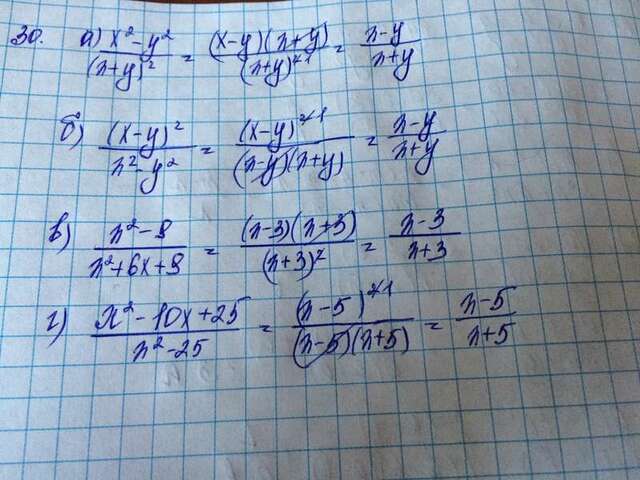 30. а) x²-y² / (x+y)² = (x-y)(x+y) / (x+y)²¹ = x-y / x+y
б) (x-y)² / x²-y² = (x-y)²¹ / (x-y)(x+y) = x-y / x+y
в) x²-9 / x²+6x+9 = (x-3)(x+3) / (x+3)² = x-3 / x+3
г) x²-10x+25 / x²-25 = (x-5)²¹ / (x-5)(x+5) = x-5 / x+5